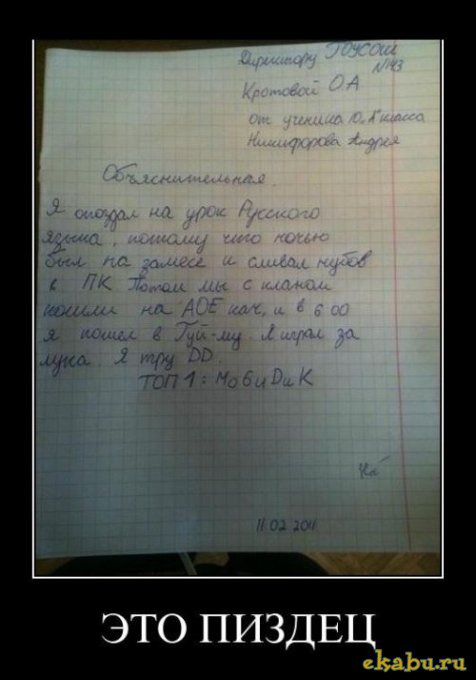 Директору ГОУСОШ
№143
Кротовой О.А
от ученика 10 "А" класса
Никифорова Андрея
Объяснительная.
Я опоздал на урок Русского
языка, потому что ночью
был на замесе и сливал нубов
в ПК Потом мы с кланом
ходили на АОЕ кач, и в 6 00
я пошел в Гуй-му. Я играл за
лука. Я тру DD.
ТОП 1: МоБиDиК
11.02.2011
ЭТО ПИЗДЕЦ
ekabu.ru